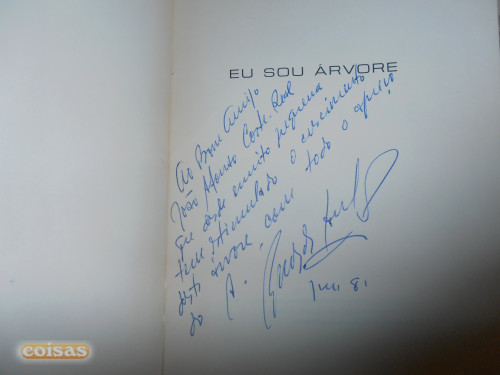 EU SOU ÁRVORE
Ao Bom Amigo
João Afonso Corte-Real
que desde muito pequena
tem estimulado o crescimento
desta árvore, com todo o apreço
do A.
81
coisas